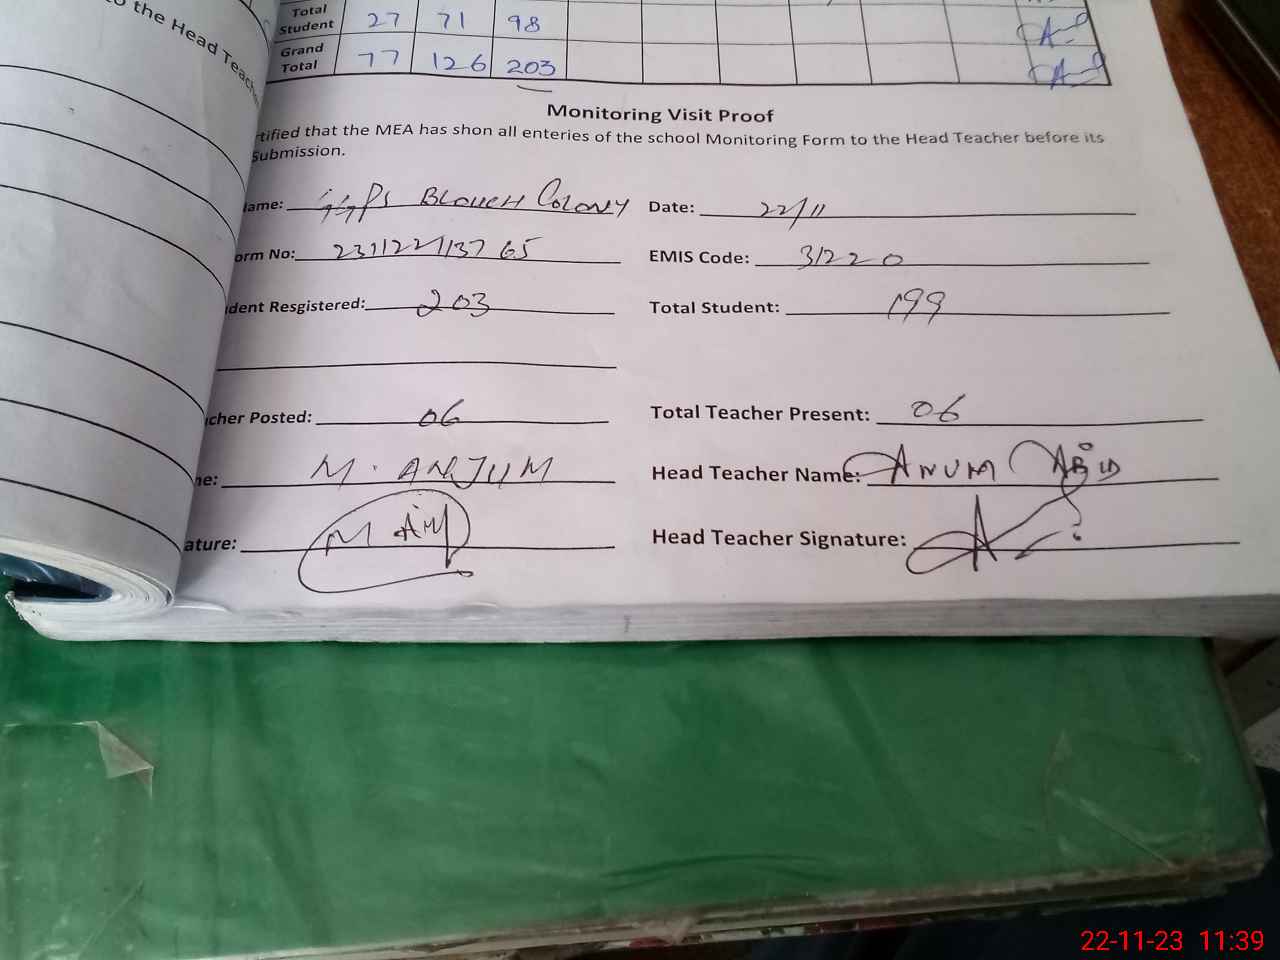 to the Head Teache
Total Student 27 71 98
Grand Total 77 126 203
Monitoring Visit Proof
rtified that the MEA has shon all enteries of the school Monitoring Form to the Head Teacher before its
Submission.
ame: GGPS BLOUCH COLONY Date: 22/11
orm No: 231122113765 EMIS Code: 31220
dent Resgistered: 203 Total Student: 199
cher Posted: 06 Total Teacher Present: 06
ne: M. ANJUM Head Teacher Name: ANUM ABID
ature: Head Teacher Signature:
22-11-23 11:39